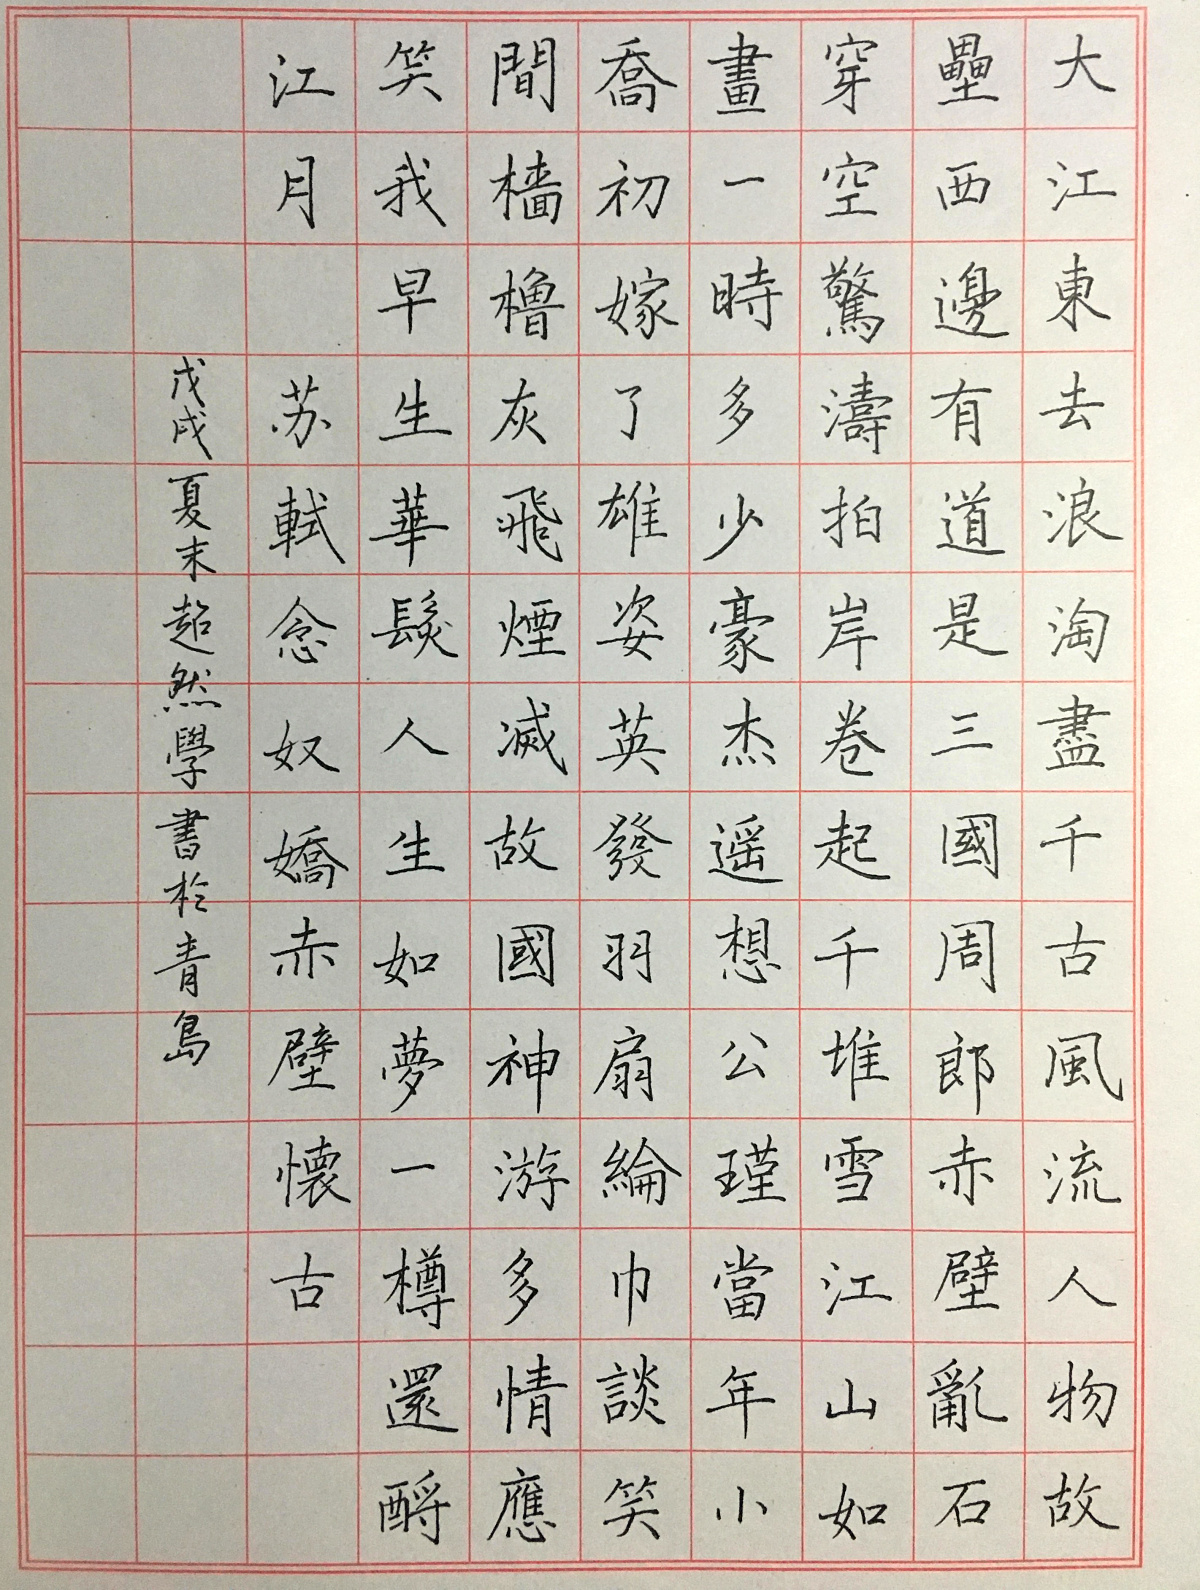 大江東去浪淘盡千古風流人物故
壘西邊有道是三國周郎赤壁亂石
穿空驚濤拍岸卷起千堆雪江山如
畫一時多少豪杰遥想公瑾當年小
喬初嫁了雄姿英發羽扇綸巾談笑
間檣櫓灰飛煙滅故國神游多情應
笑我早生華髮人生如夢一樽還酹
江月 苏軾念奴嬌赤壁懷古
戊戌夏末超然學書於青島